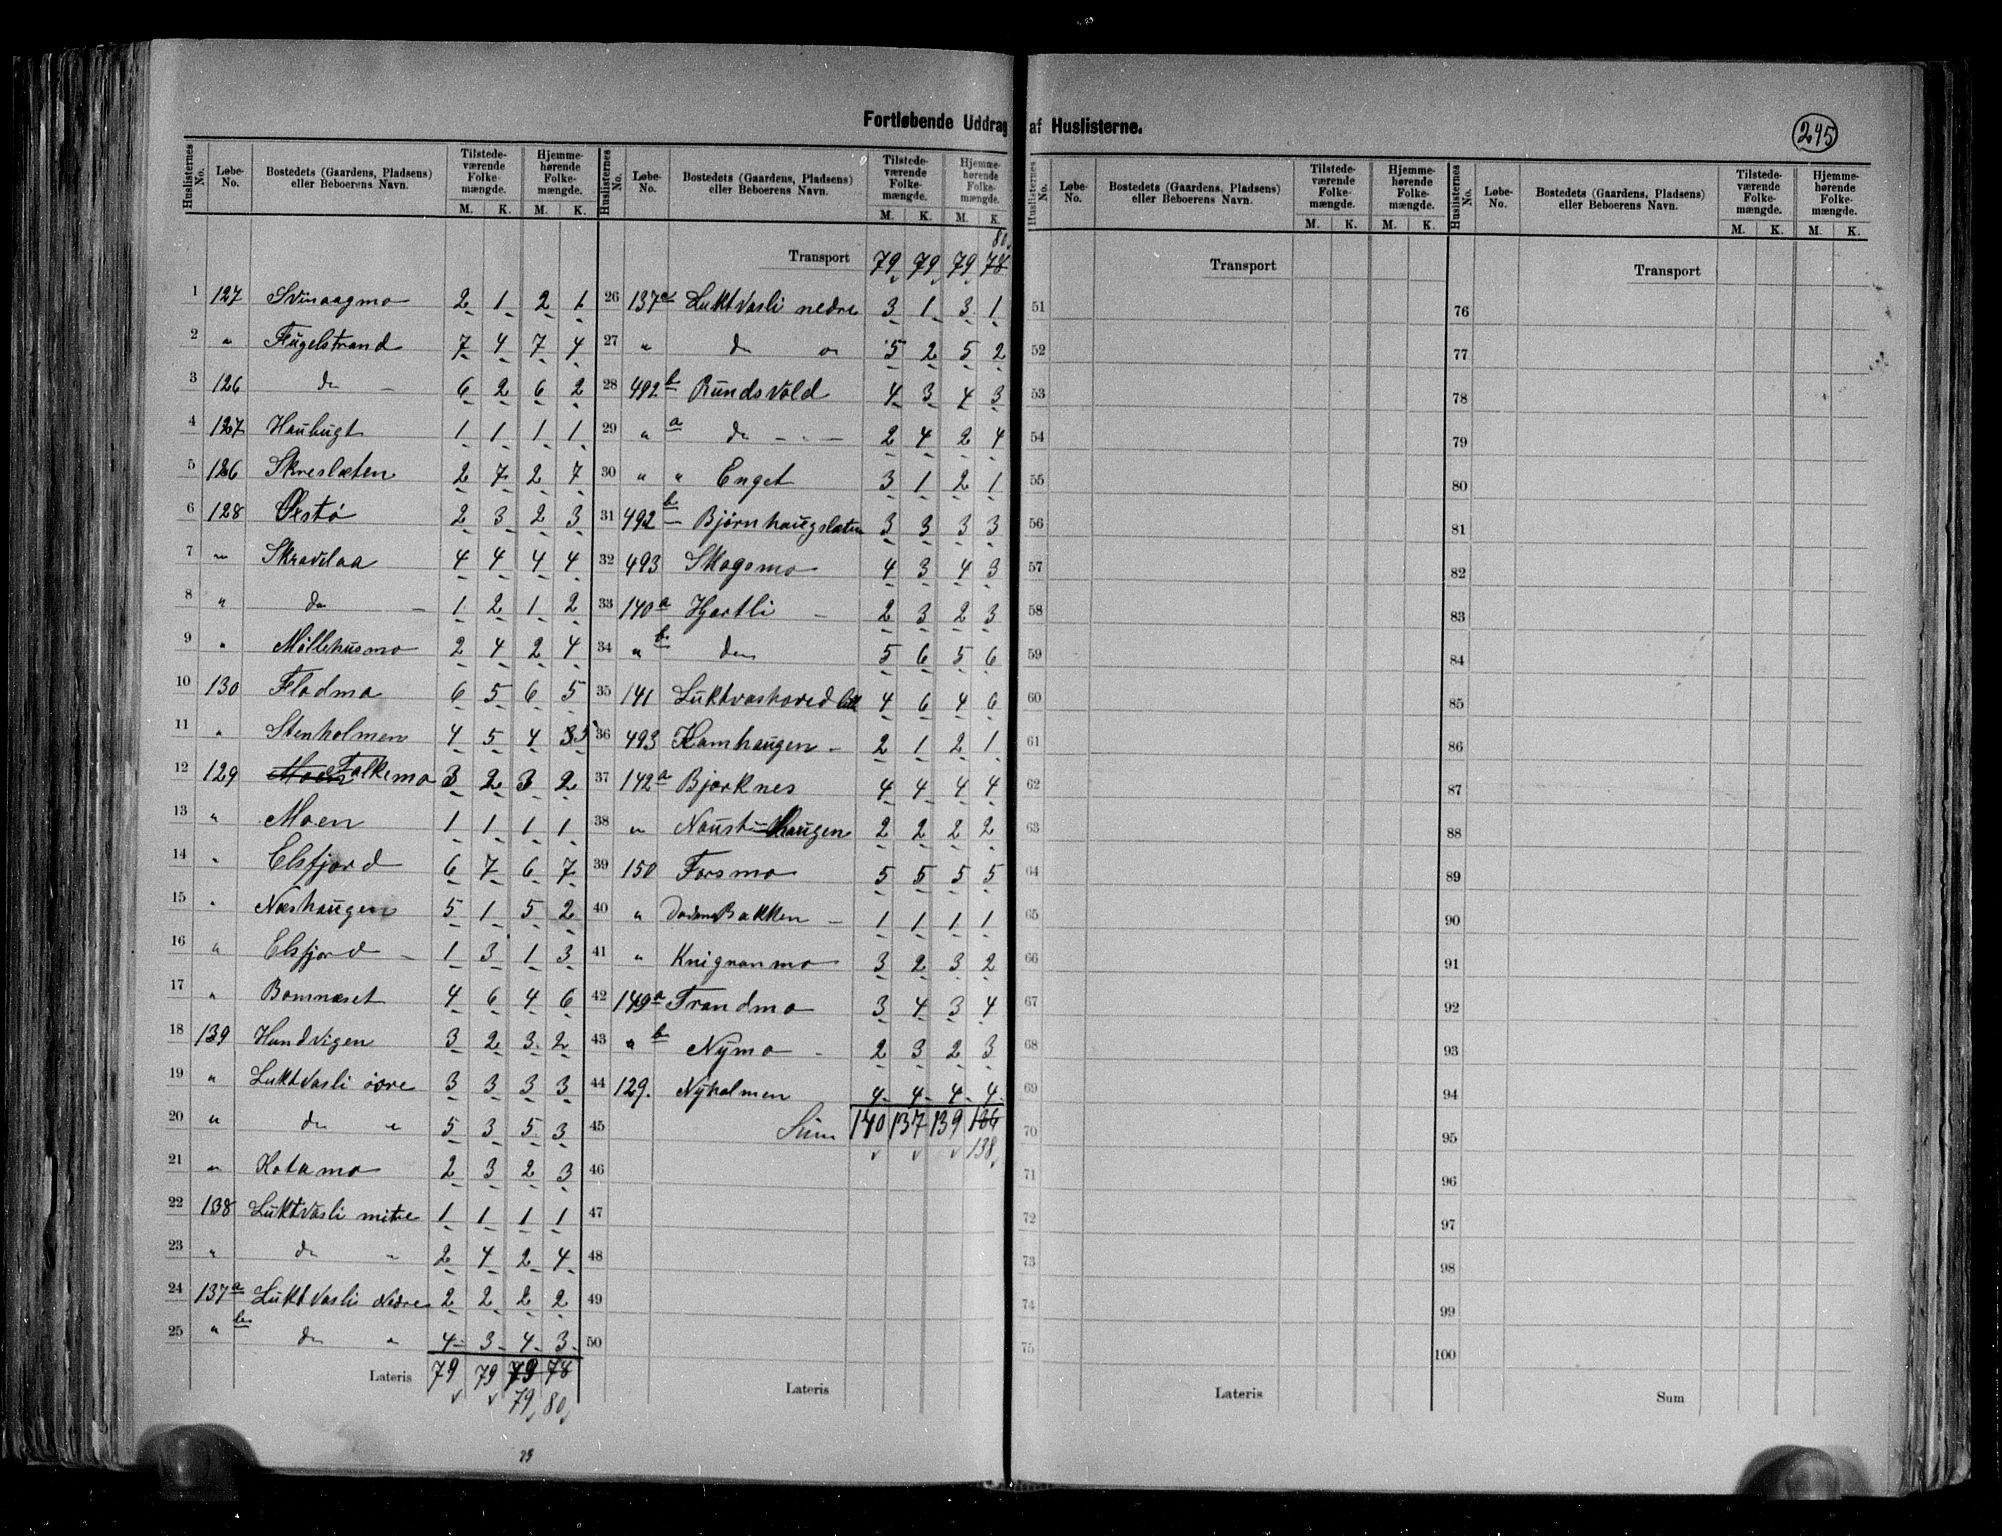 Fortløbende Uddrag af Huslisterne.
245
Huslisternes No. Løbe-No. Bostedets (Gaardens, Pladsens) eller Beboerens Navn. Tilstede-værende Folke-mængde. Hjemme-hørende Folke-mængde.
M. K. M. K.
1 127 Svinaagmo 2 1 2 1
2 " Flügelstrand 7 4 7 4
3 126 do – 6 2 6 2
4 127 Haubugt 1 1 1 1
5 126 Skreslæten 2 7 2 7
6 128 Øxstø 2 3 2 3
7 " Skravlaa 4 4 4 4
8 " do – 1 2 1 2
9 " Møllehusmo 2 4 2 4
10 130 Fladmo 6 5 6 5
11 " Stenholmen 4 5 4 5
12 129 Falkemo 3 2 3 2
13 " Moen 1 1 1 1
14 " Elsfjord 6 7 6 7
15 " Næshaugen 5 1 5 2
16 " Elsfjord – 1 3 1 3
17 " Bomnæset 4 6 4 6
18 139 Hundvigen 3 2 3 2
19 " Luktvasli övre 3 3 3 3
20 " do " 5 3 5 3
21 " Kotamo 2 3 2 3
22 138 Luktvasli mitre 1 1 1 1
23 " do " 2 4 2 4
24 137a Luktvasli Nedre 2 2 2 2
25 " b do " 4 3 4 3
Lateris 79 79 79 78
79 80
Huslisternes No. Løbe-No. Bostedets (Gaardens, Pladsens) eller Beboerens Navn. Tilstede-værende Folke-mængde. Hjemme-hørende Folke-mængde.
M. K. M. K.
80
Transport 79 79 79 78
26 137a Luktvasli nedre 3 1 3 1
27 " do " 5 2 5 2
28 492b Rundsvold 4 3 4 3
29 " a do – " – 2 4 2 4
30 " " Enget 3 1 2 1
31 492b – Bjørnhaugslæten 3 3 3 3
32 493 Skogsmo 4 3 4 3
33 140a Hjartli – 2 3 2 3
34 " b do 5 6 5 6
35 141 Luktvashoved 4 6 4 6
36 493 Kamhaugen – 2 1 2 1
37 142a Bjørknes 4 4 4 4
38 " Nausthaugen 2 2 2 2
39 150 Forsmo 5 5 5 5
40 " Bakken – 1 1 1 1
41 " Knignanmo 3 2 3 2
42 149a Trandmo 3 4 3 4
43 " b Nymo – 2 3 2 3
44 129. Nyholmen 4 4 4 4
45 Sum 140 137 139 136
138
46
47
48
49
50
Lateris
Huslisternes No. Løbe-No. Bostedets (Gaardens, Pladsens) eller Beboerens Navn. Tilstede-værende Folke-mængde. Hjemme-hørende Folke-mængde.
M. K. M. K.
Transport
51
52
53
54
55
56
57
58
59
60
61
62
63
64
65
66
67
68
69
70
71
72
73
74
75
Lateris
Huslisternes No. Løbe-No. Bostedets (Gaardens, Pladsens) eller Beboerens Navn. Tilstede-værende Folke-mængde. Hjemme-hørende Folke-mængde.
M. K. M. K.
Transport
76
77
78
79
80
81
82
83
84
85
86
87
88
89
90
91
92
93
94
95
96
97
98
99
100
Sum